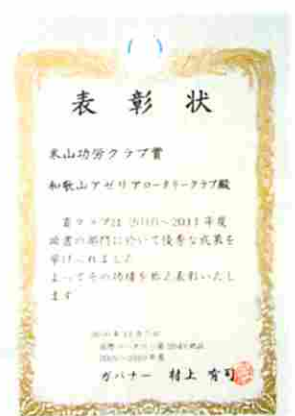 表彰状
米山功労クラブ賞
和歌山アゼリアロータリークラブ殿
貴クラブは 2010〜2011年度
の部門に於いて優秀な成果を
挙げられました
よってその功績を称え表彰いたし
ます
ガバナー 村上 有司